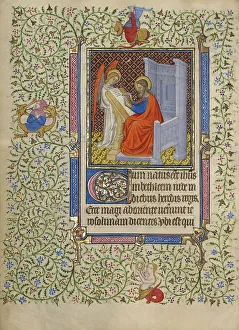 Cum natus eēt ihūs
in bethleem iude in
diebus herodis regis.
Ecce magi ab oriente uenerunt ie
rosolimam dicentes vbi est qui